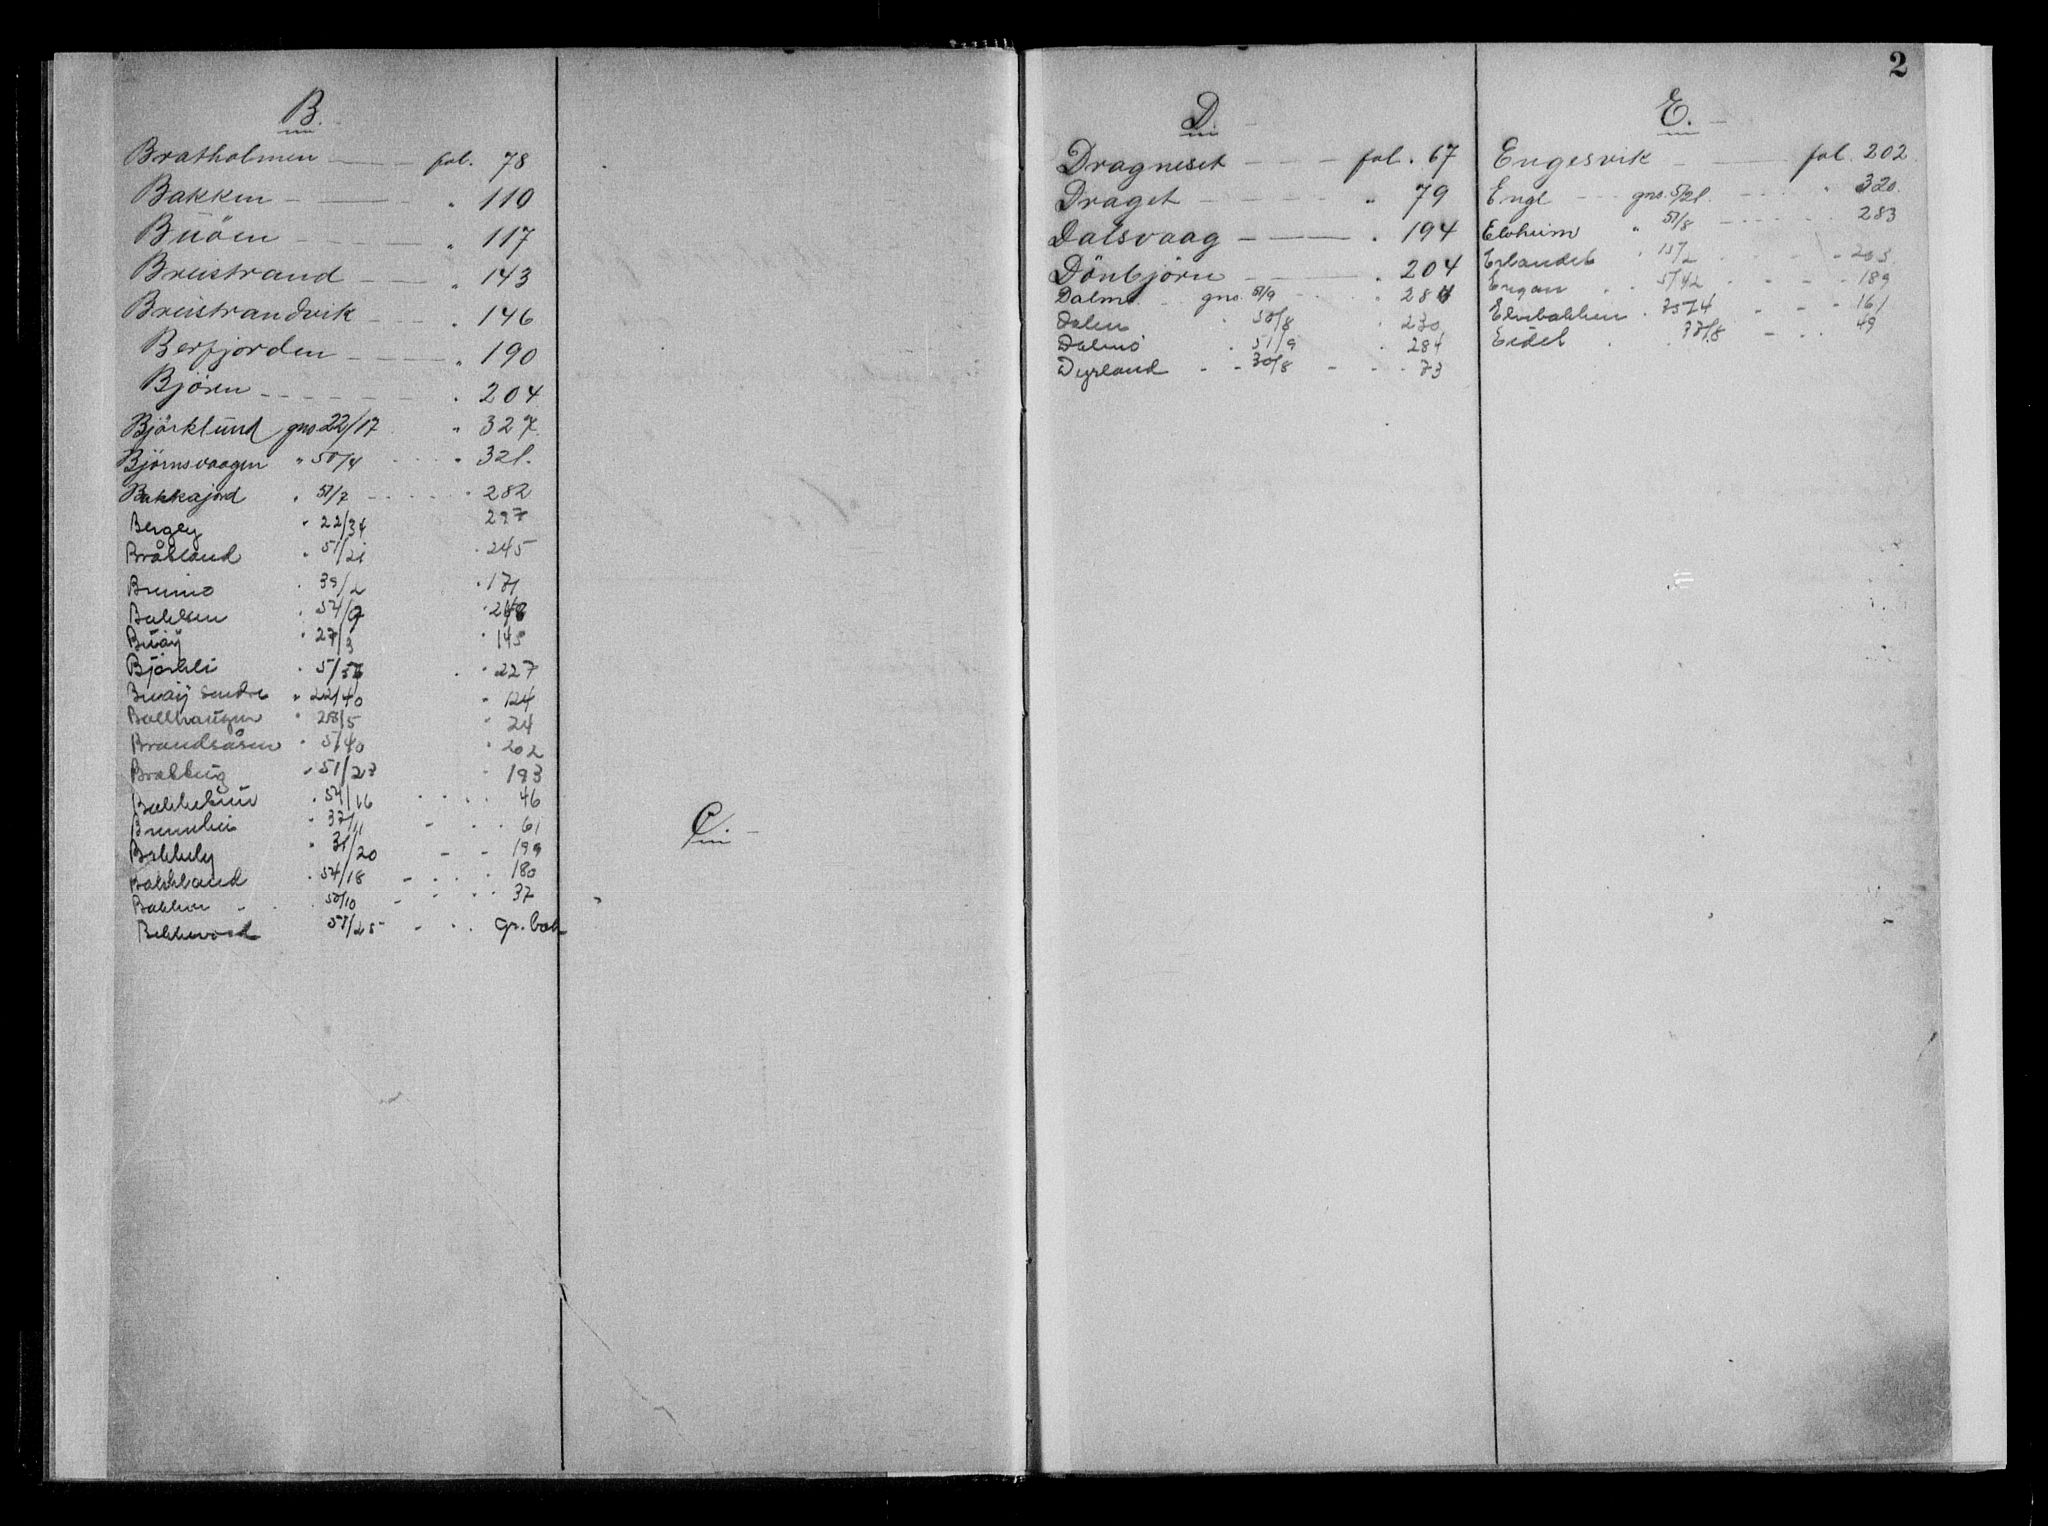 B.
Bratholmen fol. 78
Bakken " 110
Buöen " 117
Breistrand " 143
Breistrandvik " 146
Berfjorden " 190
Björn " 204
Björklund gno 22/17 " 327
Björnsvaagen " 50/4 " 321.
Bakkajord " 51/7 " 282
Bergly " 22/34 297
Bråtland " 51/21 " 245
Brennmo " 39/2 " 171
Bakken " 54/9
Buöy " 27/3 " 145
Björkli " 5/36 " 227
Buöy söndre " 22/40 " 124
Ballhaugen " 28/5 " 24
Brandsåsen " 5/40 " 202
Brækkug " 51/23 " 193
Bakkebui " 54/16 46
Brennhei " 37/11 61
Bakkely " 31/20 199
Bakkland " 54/18 180
Bakken " 50/10 37
Bekkevold 51/25 gr. bok
C.
2
D.
Dragneset fol. 67
Draget " 79
Dalsvaag " 194
Dönbjörn " 204
Dalmo gno. 51/9 " 284
Dalen " 50/8 " 230
Dalmo " 51/9 " 284
Dyrland 30/8 73
E.
Engesvik fol. 202
Enge gno. 5/21. " 320.
Elvheim " 51/8 283
Erlandet " 15/2 205
Engan " 5/42 189
Elvebakken " 35/4 161
Eidet 37/8 49